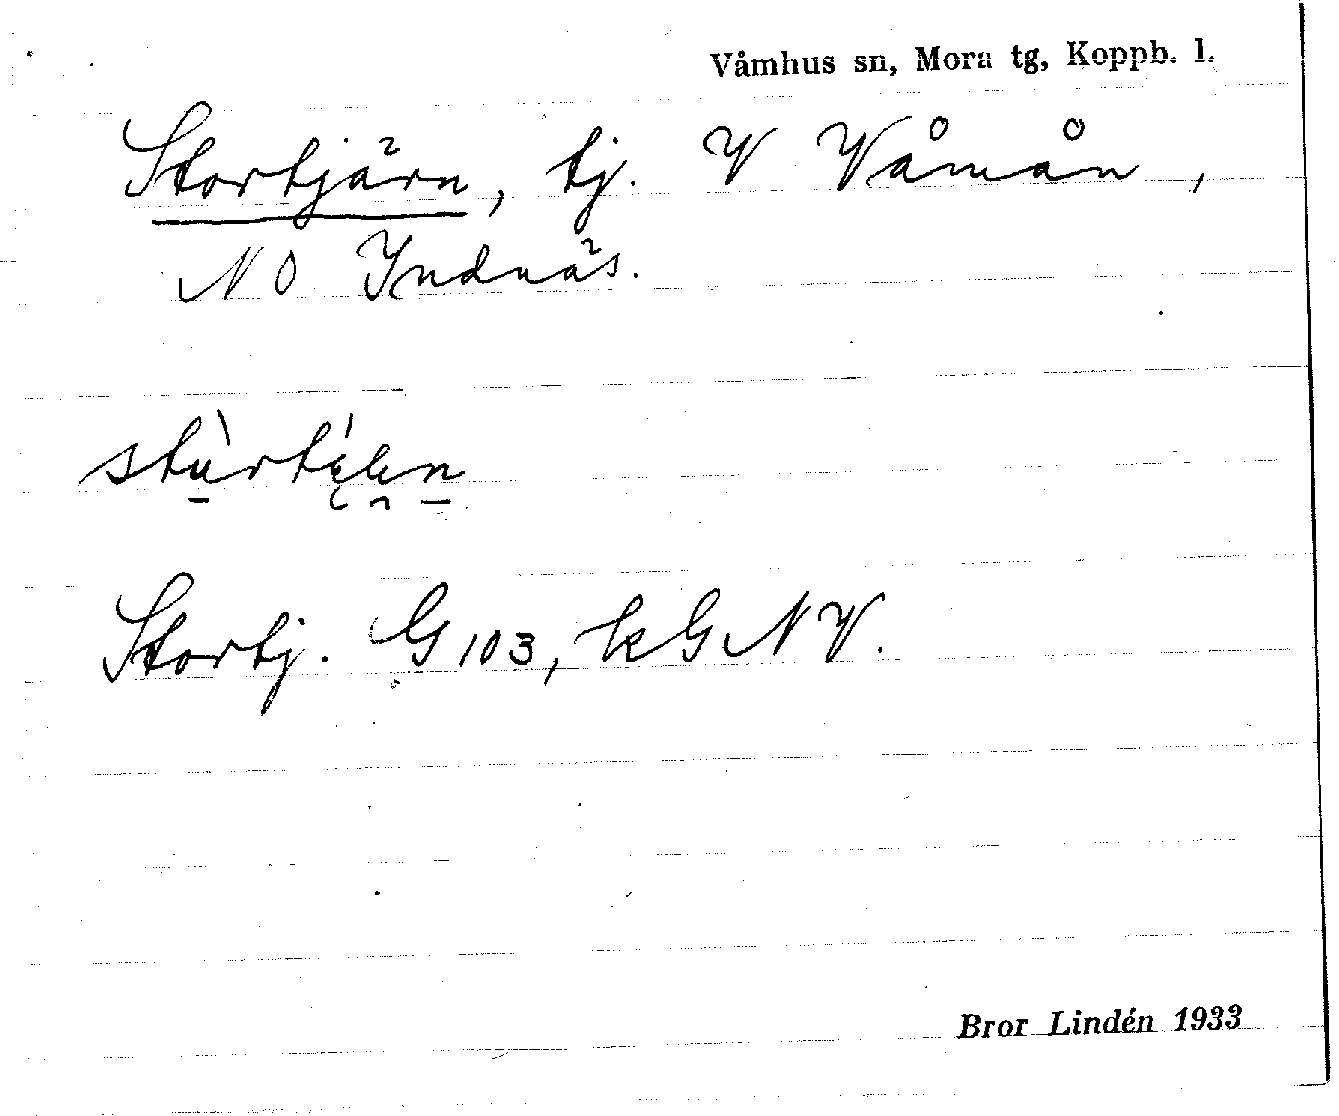 Våmhus sn, Mora tg, Koppb. l.
Stortjärn, tj. V Våmån,
NO Indnäs.
Stortj. G 103, kG NV.
Bror Lindén 1933